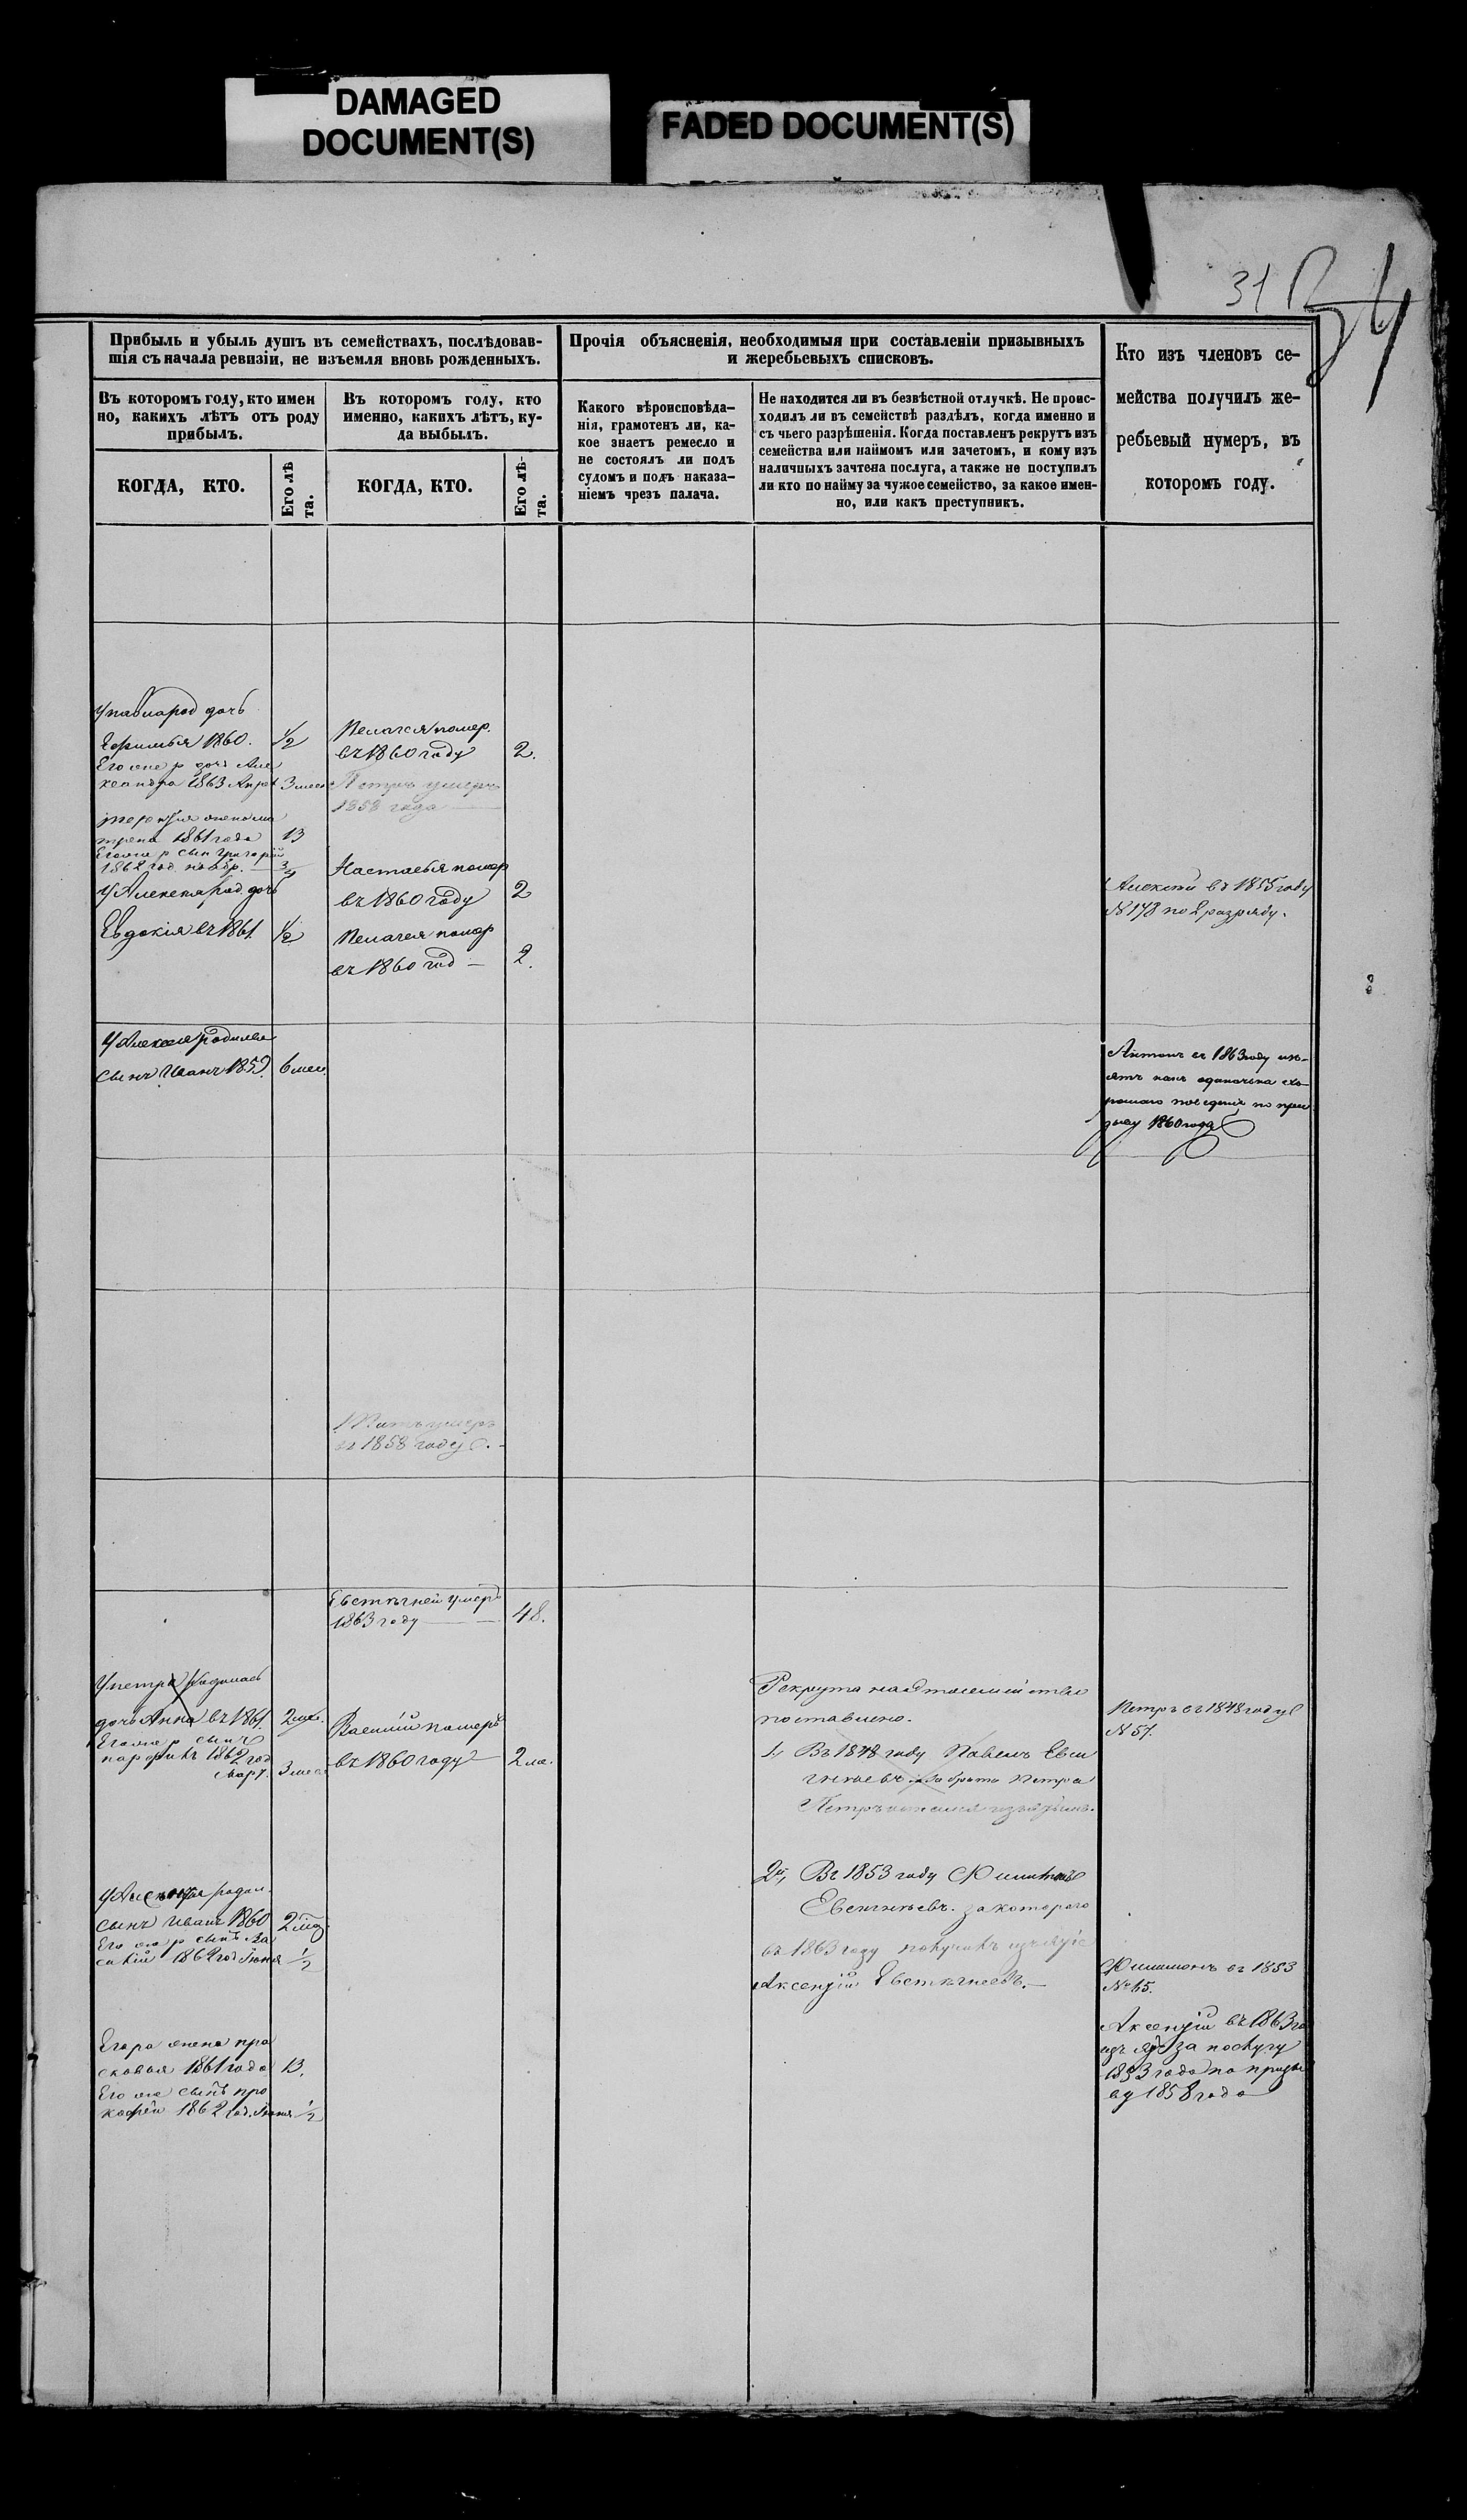 DAMAGED
DOCUMENT(S)
FADED DOCUMENT(S)
31
Прибыль и убыль душъ въ семействахъ, послѣдовав-
шія съ начала ревизіи, не изъемля вновь рожденныхъ.
Въ которомъ году, кто имен
но, какихъ лѣтъ отъ роду
прибылъ.
КОГДА, КТО.
Его лѣ
та.
Въ которомъ году, кто
именно, какихъ лѣтъ, ку-
да выбылъ.
КОГДА, КТО.
Его лѣ-
та.
Прочія объясненія, необходимыя при составленіи призывныхъ
и жеребьевыхъ списковъ.
Какого вѣроисповѣда-
нія, грамотенъ ли, ка-
кое знаетъ ремесло и
не состоялъ ли подъ
судомъ и подъ наказа-
ніемъ чрезъ палача.
Не находится ли въ безвѣстной отлучкѣ. Не проис-
ходилъ ли въ семействѣ раздѣлъ, когда именно и
съ чьего разрѣшенія. Когда поставленъ рекрутъ изъ
семейства или наймомъ или зачетомъ, и кому изъ
наличныхъ зачтена послуга, а также не поступилъ
ли кто по найму за чужое семейство, за какое имен-
но, или какъ преступникъ.
Кто изъ членовъ се-
мейства получилъ же-
ребьевый нумеръ, въ
которомъ году.
дочь
1860. 1/2
Его же р дочь Але
ксандра 1863 3 мес
жена ма
трена 1861 года 13
Его же р сын Григорій
1862 год
У Алексея род. дочь
Евдокія въ 1861. 1/2
Пелагея помер.
въ 1860 году 2.
Петръ умеръ
1858 года
Настасья помер
въ 1860 году 2
Пелагея помер
въ 1860 год — 2.
Алексей въ 1855 году
№ 178 по 2 разряду.
У Алексея родился
сынъ Иванъ 1859. 6 мес.
Антонъ въ 1863 году изъ-
ятъ какъ одиночка хо-
рошаго поведения по приз
1860 года
умеръ
въ 1858 году
Евстигней умеръ
1863 году — 48.
У петра родилась
дочь Анна въ 1861. 2 мес.
Его же р сынъ
1862 год
Март. 3 мес
Василій померъ
въ 1860 году 2 ме.
Рекрута
поставлено.
1, Въ 1848 году Павелъ Евсти
гнеевъ за брата Петра
Петръ
2е, Въ 1853 году Филимонъ
Евстигнеевъ. за котораго
въ 1863 году получилъ изъятіе
Аксентій Евстигнеевъ.—
Петръ въ 1848 году
№ 57.
родил.
сынъ Иванъ 1860 2 мес.
Его же р сынъ Ва
силій 1862 год Июня 1/2
Филимонъ въ 1853
№ 65.
Аксентій въ 1863 го
изъятъ за послугу
1853 года по призы
ву 1858 года
Егора жена пра
сковья 1861 года 13.
Его же сынъ про
кофей 1862 год. Июня 1/2